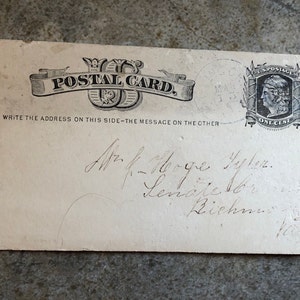 U.S. POSTAGE
POSTAL CARD.
WRITE THE ADDRESS ON THIS SIDE—THE MESSAGE ON THE OTHER
ONE CENT
Hoge Tyler
Senator
Richm
Va